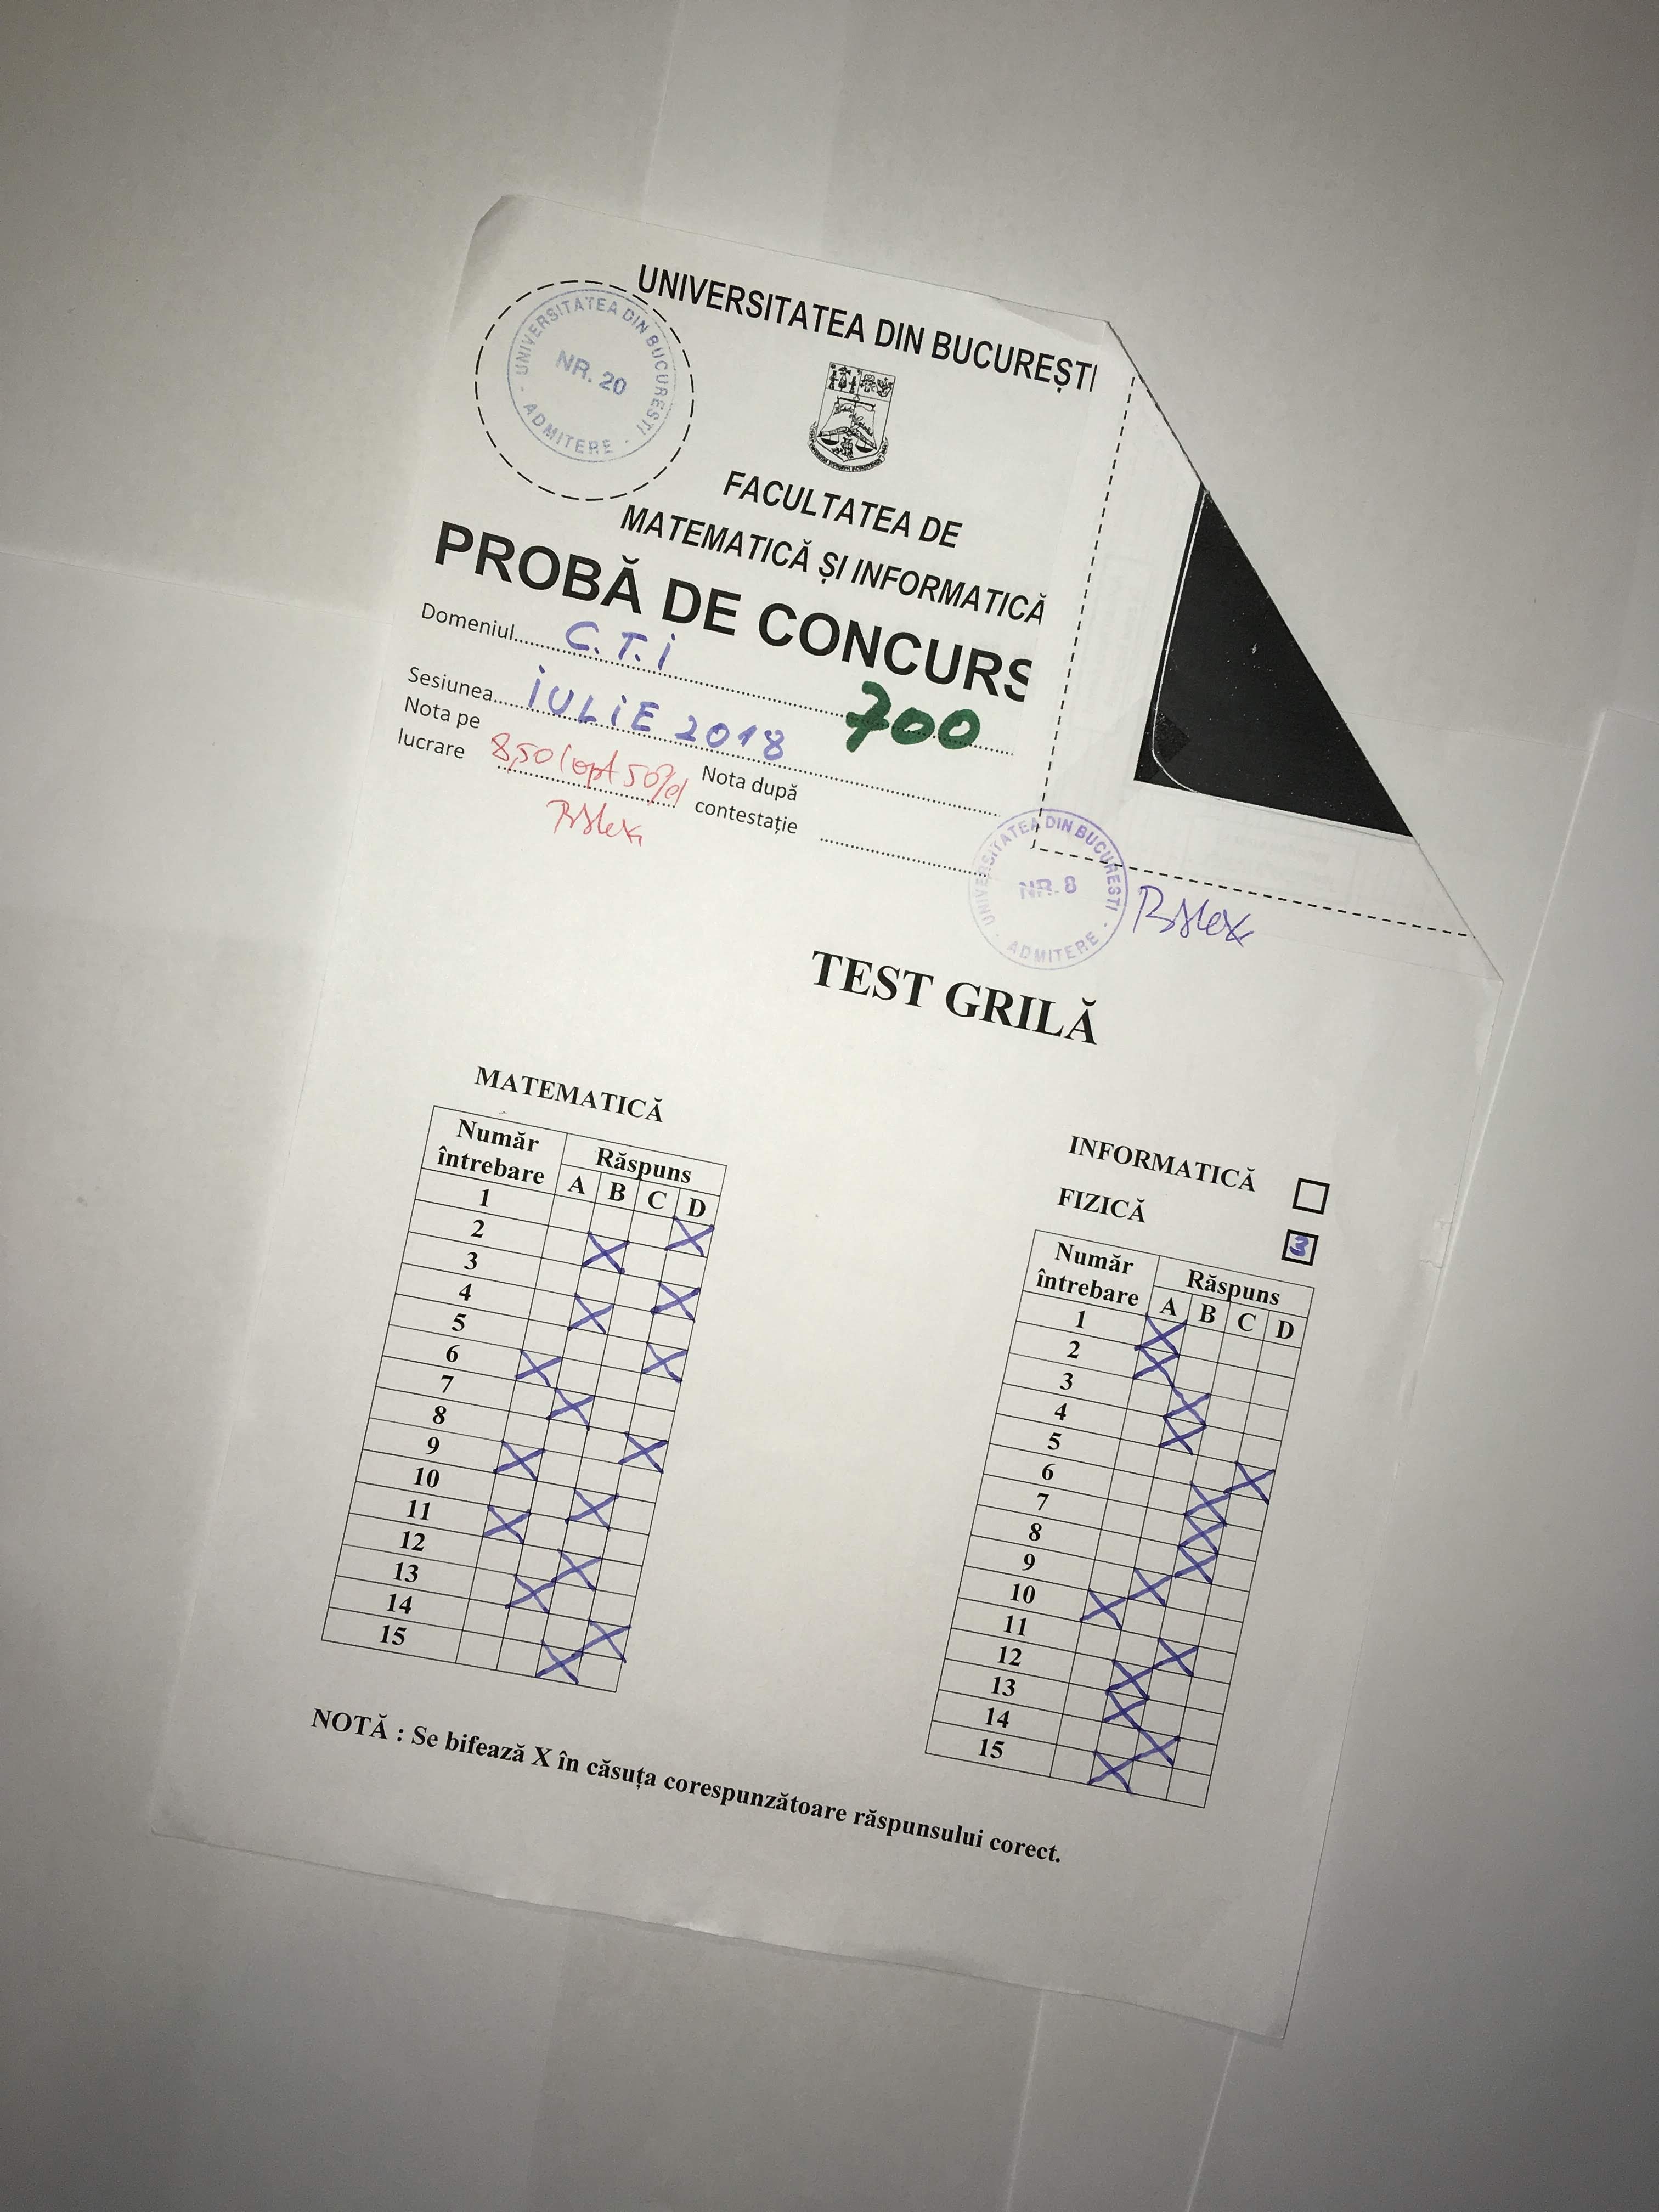 UNIVERSITATEA DIN BUCUREȘTI
UNIVERSITATEA DIN BUCURESTI
NR. 20
ADMITERE
FACULTATEA DE
MATEMATICĂ ȘI INFORMATICĂ
PROBĂ DE CONCURS
Domeniul C.T.I
Sesiunea IULIE 2018
700
Nota pe
lucrare 8,50 (opt 50%)
Nota după
contestație
UNIVERSITATEA DIN BUCURESTI
NR. 8
ADMITERE
TEST GRILĂ
MATEMATICĂ
Număr
întrebare
Răspuns
A B C D
1 X
2 X
3 X
4 X
5 X
6 X
7 X
8 X
9 X
10 X
11 X
12 X
13 X
14 X
15 X
INFORMATICĂ
FIZICĂ 3
Număr
întrebare
Răspuns
A B C D
1 X
2 X
3 X
4 X
5 X
6 X
7 X
8 X
9 X
10 X
11 X
12 X
13 X
14 X
15 X
NOTĂ : Se bifează X în căsuța corespunzătoare răspunsului corect.